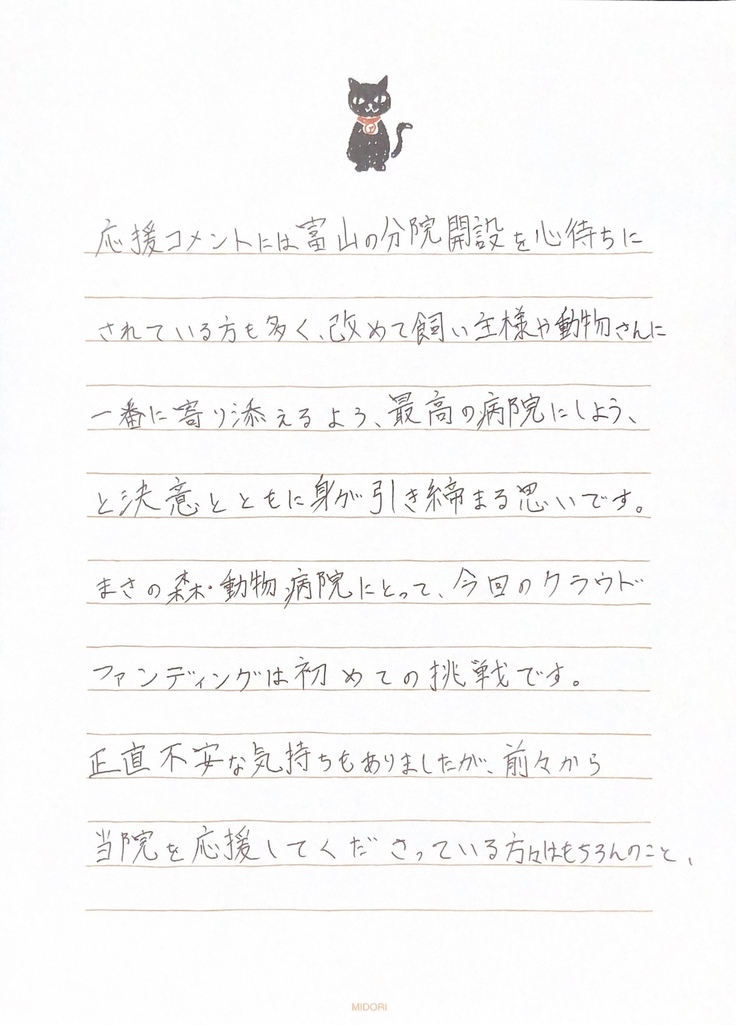 応援コメントには富山の分院開設を心待ちに
されている方も多く、改めて飼い主様や動物さんに
一番に寄り添えるよう、最高の病院にしよう、
と決意とともに身が引き締まる思いです。
まさの森・動物病院にとって、今回のクラウド
ファンディングは初めての挑戦です。
正直不安な気持ちもありましたが、前々から
当院を応援してくださっている方々はもちろんのこと、
MIDORI